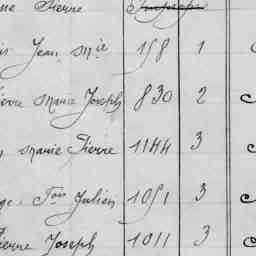 Pierre
Jean Mie 158 1
Pierre Marie Joseph 830 2
Marie Pierre 1144 3
Fois Julien 1051 3
Pierre Joseph 1011 3